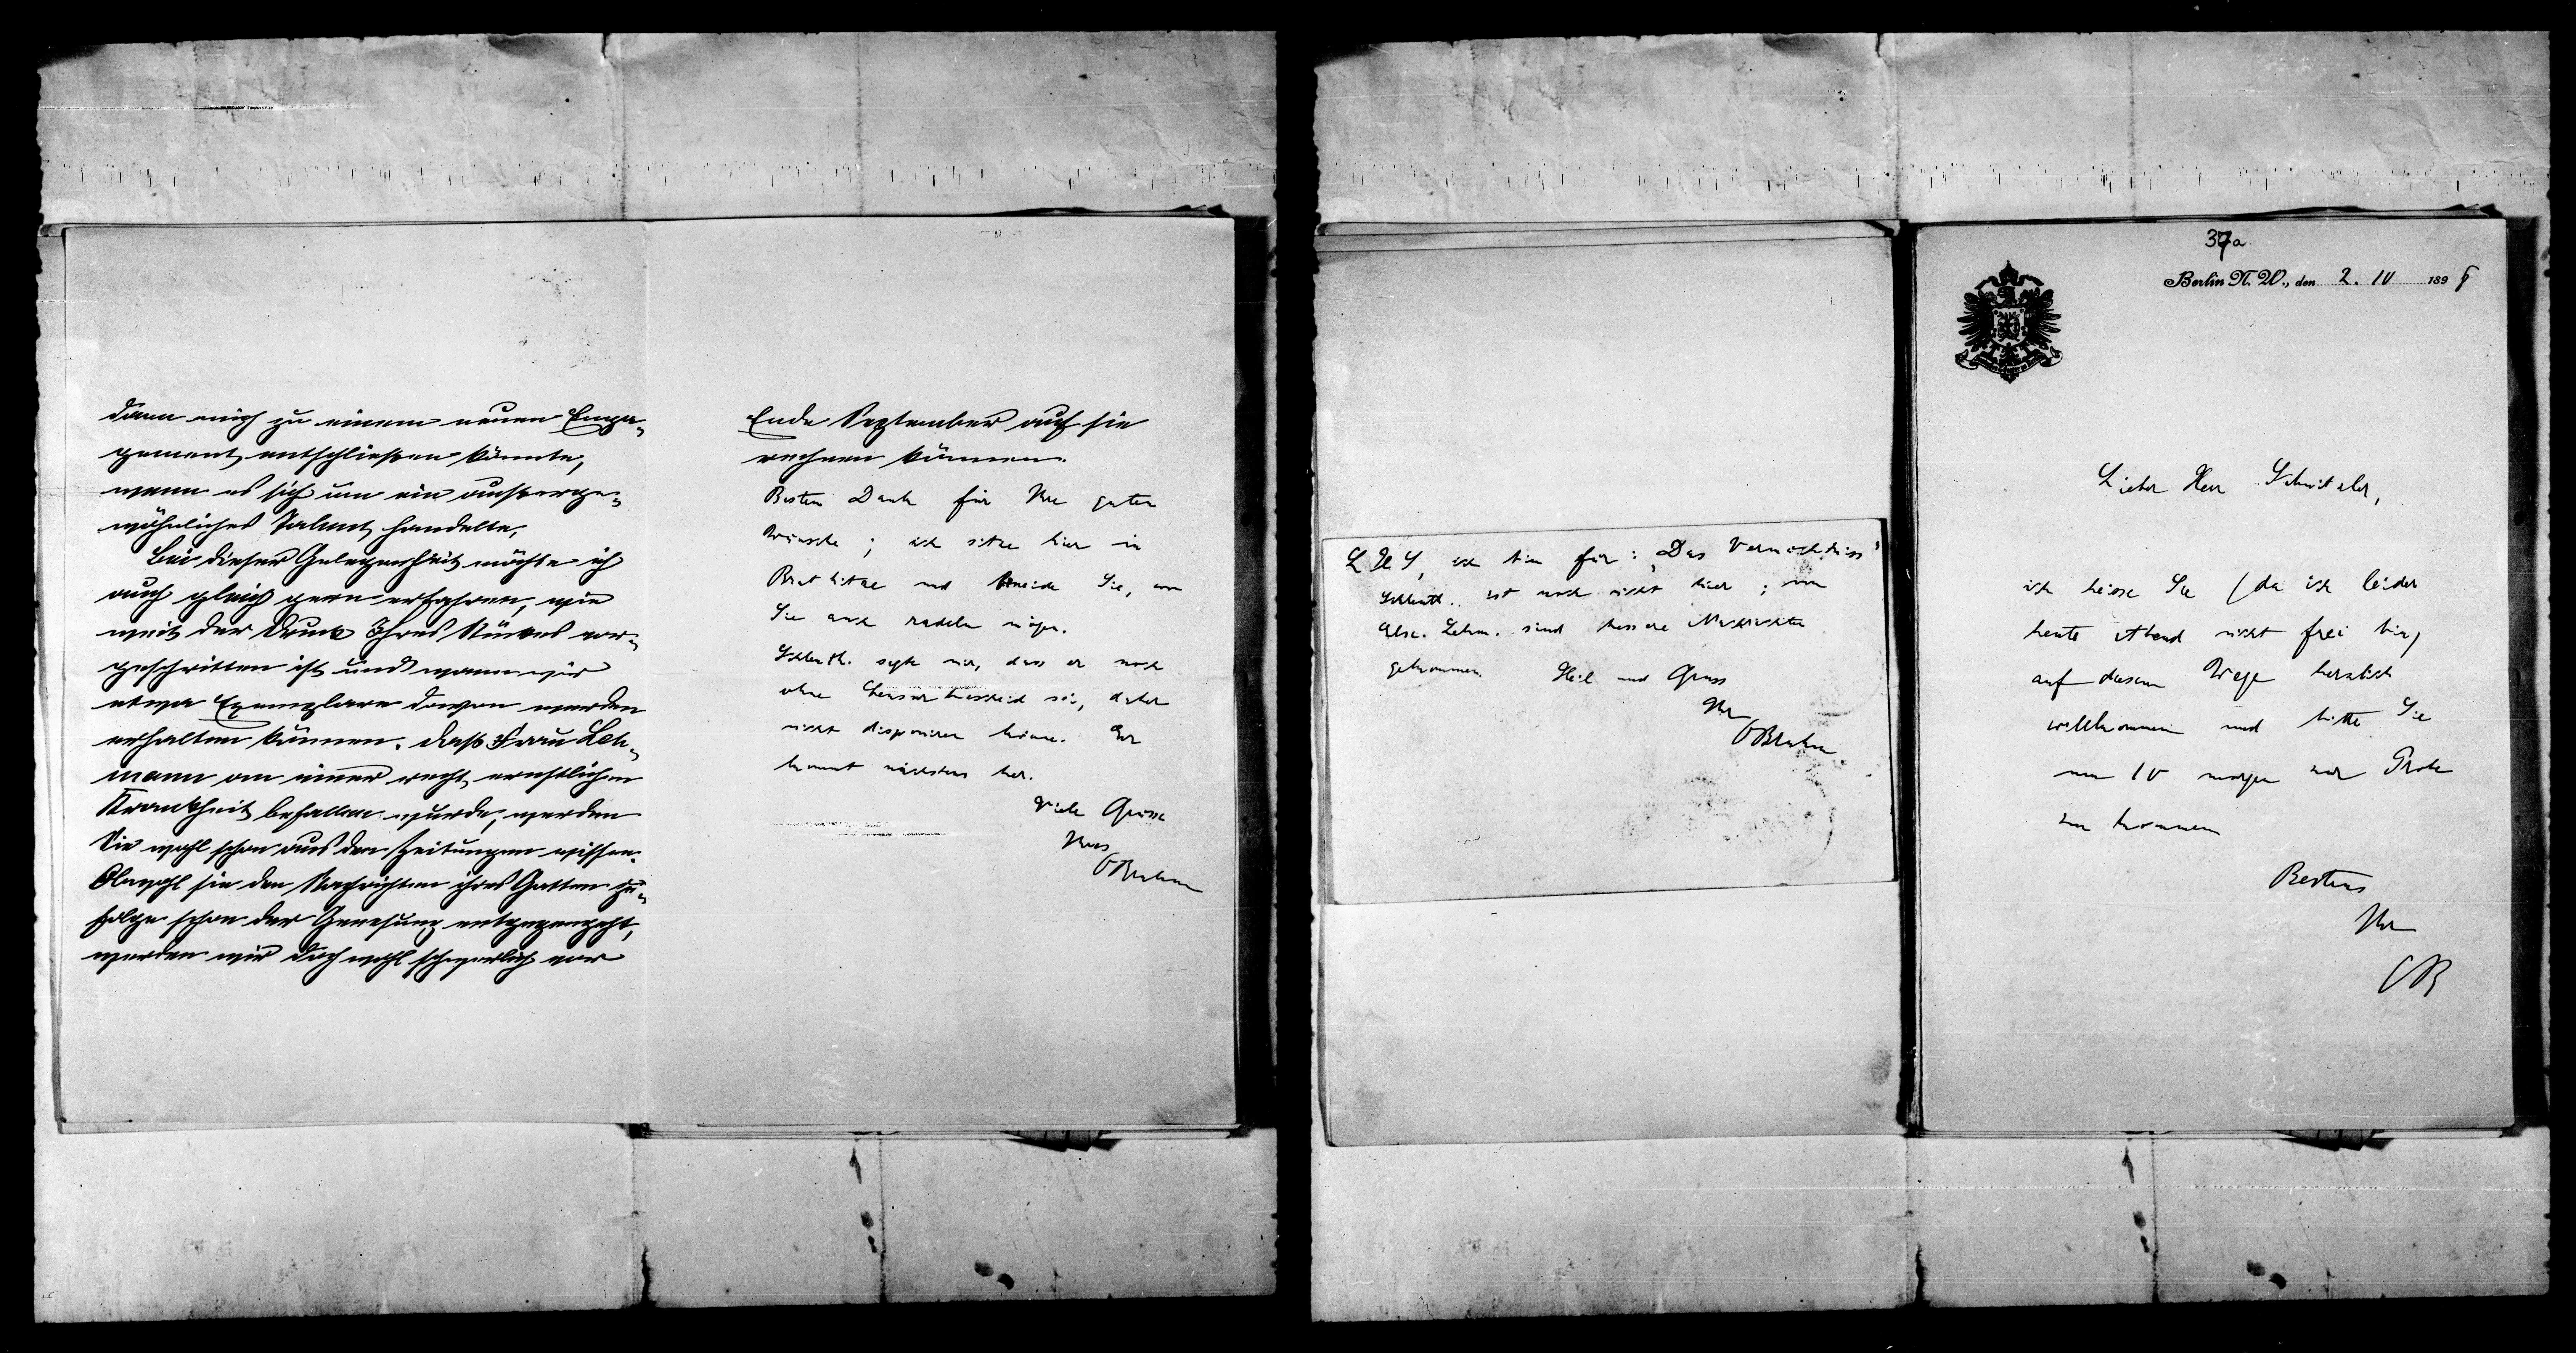 dann mich zu einem neuen Enga-
gement entschließen könnte,
wenn es sich um ein ausserge-
wöhnliches Talent handelte.
Bei dieser Gelegenheit möchte ich
auch gleich gern erfahren, wie
weit der Druck Ihres Stückes vor-
geschritten ist und wann wir
etwa Exemplare davon werden
erhalten können. Daß Frau Leh-
mann von einer recht ernstlichen
Krankheit befallen wurde, werden
Sie wohl schon aus den Zeitungen wissen.
Obwohl sie den Nachrichten ihres Gatten zu-
folge schon der Genesung entgegengeht,
werden wir doch wohl schwerlich vor
Ende September auf sie
rechnen können.
Besten Dank für Ihre guten
Wünsche; ich sitze hier in
Bruthitze und beneide Sie, wo
Sie auch radeln mögen.
Schlenth. sagte mir, dass er noch
ohne Censurbescheid sei, daher
nicht disponiren könne. Er
kommt nächstens her.
Viele Grüsse
Ihres
OBrahm
L H S, ich bin für: „Das Vermächtniss"
Schlenth.. ist noch nicht hier; von
Else. Lehm. sind bessere Nachrichten
gekommen. Heil und Gruss
Ihr
OBrahm
37a
Berlin N. W., den 2. 10 1898
Lieber Herr Schnitzler,
ich heisse Sie (da ich leider
heute Abend nicht frei bin)
auf diesem Wege herzlich
willkommen und bitte Sie
um 10 morgen zur Probe
zu kommen
Bestens
Ihr
OB